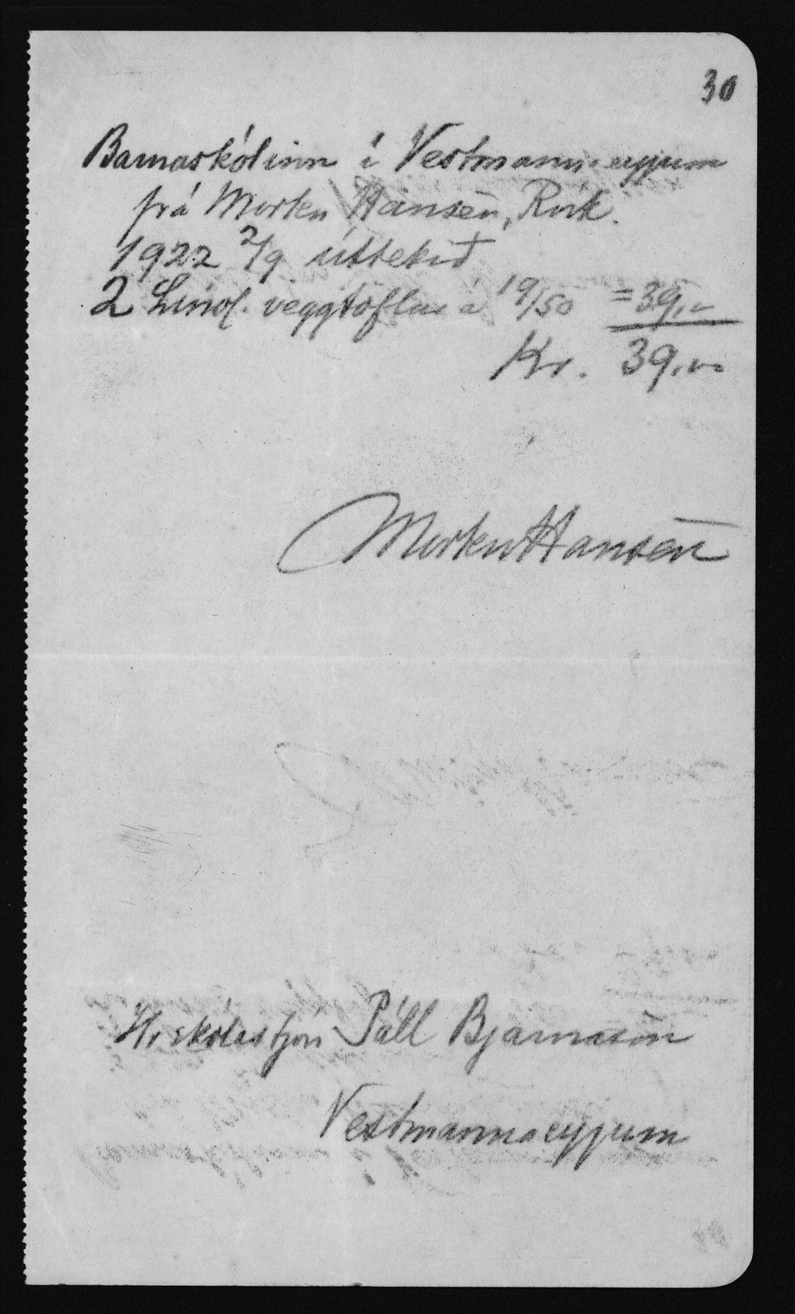 30
Barnaskólinn í Vestmannaeyjum
frá Morten Hansen, Rvík.
1922 2/9 úttekið
2 Linol. veggtöflur a 19/50 = 39,00
Kr. 39,00
Morten Hansen
Hr. skólastjóri Páll Bjarnason
Vestmannaeyjum